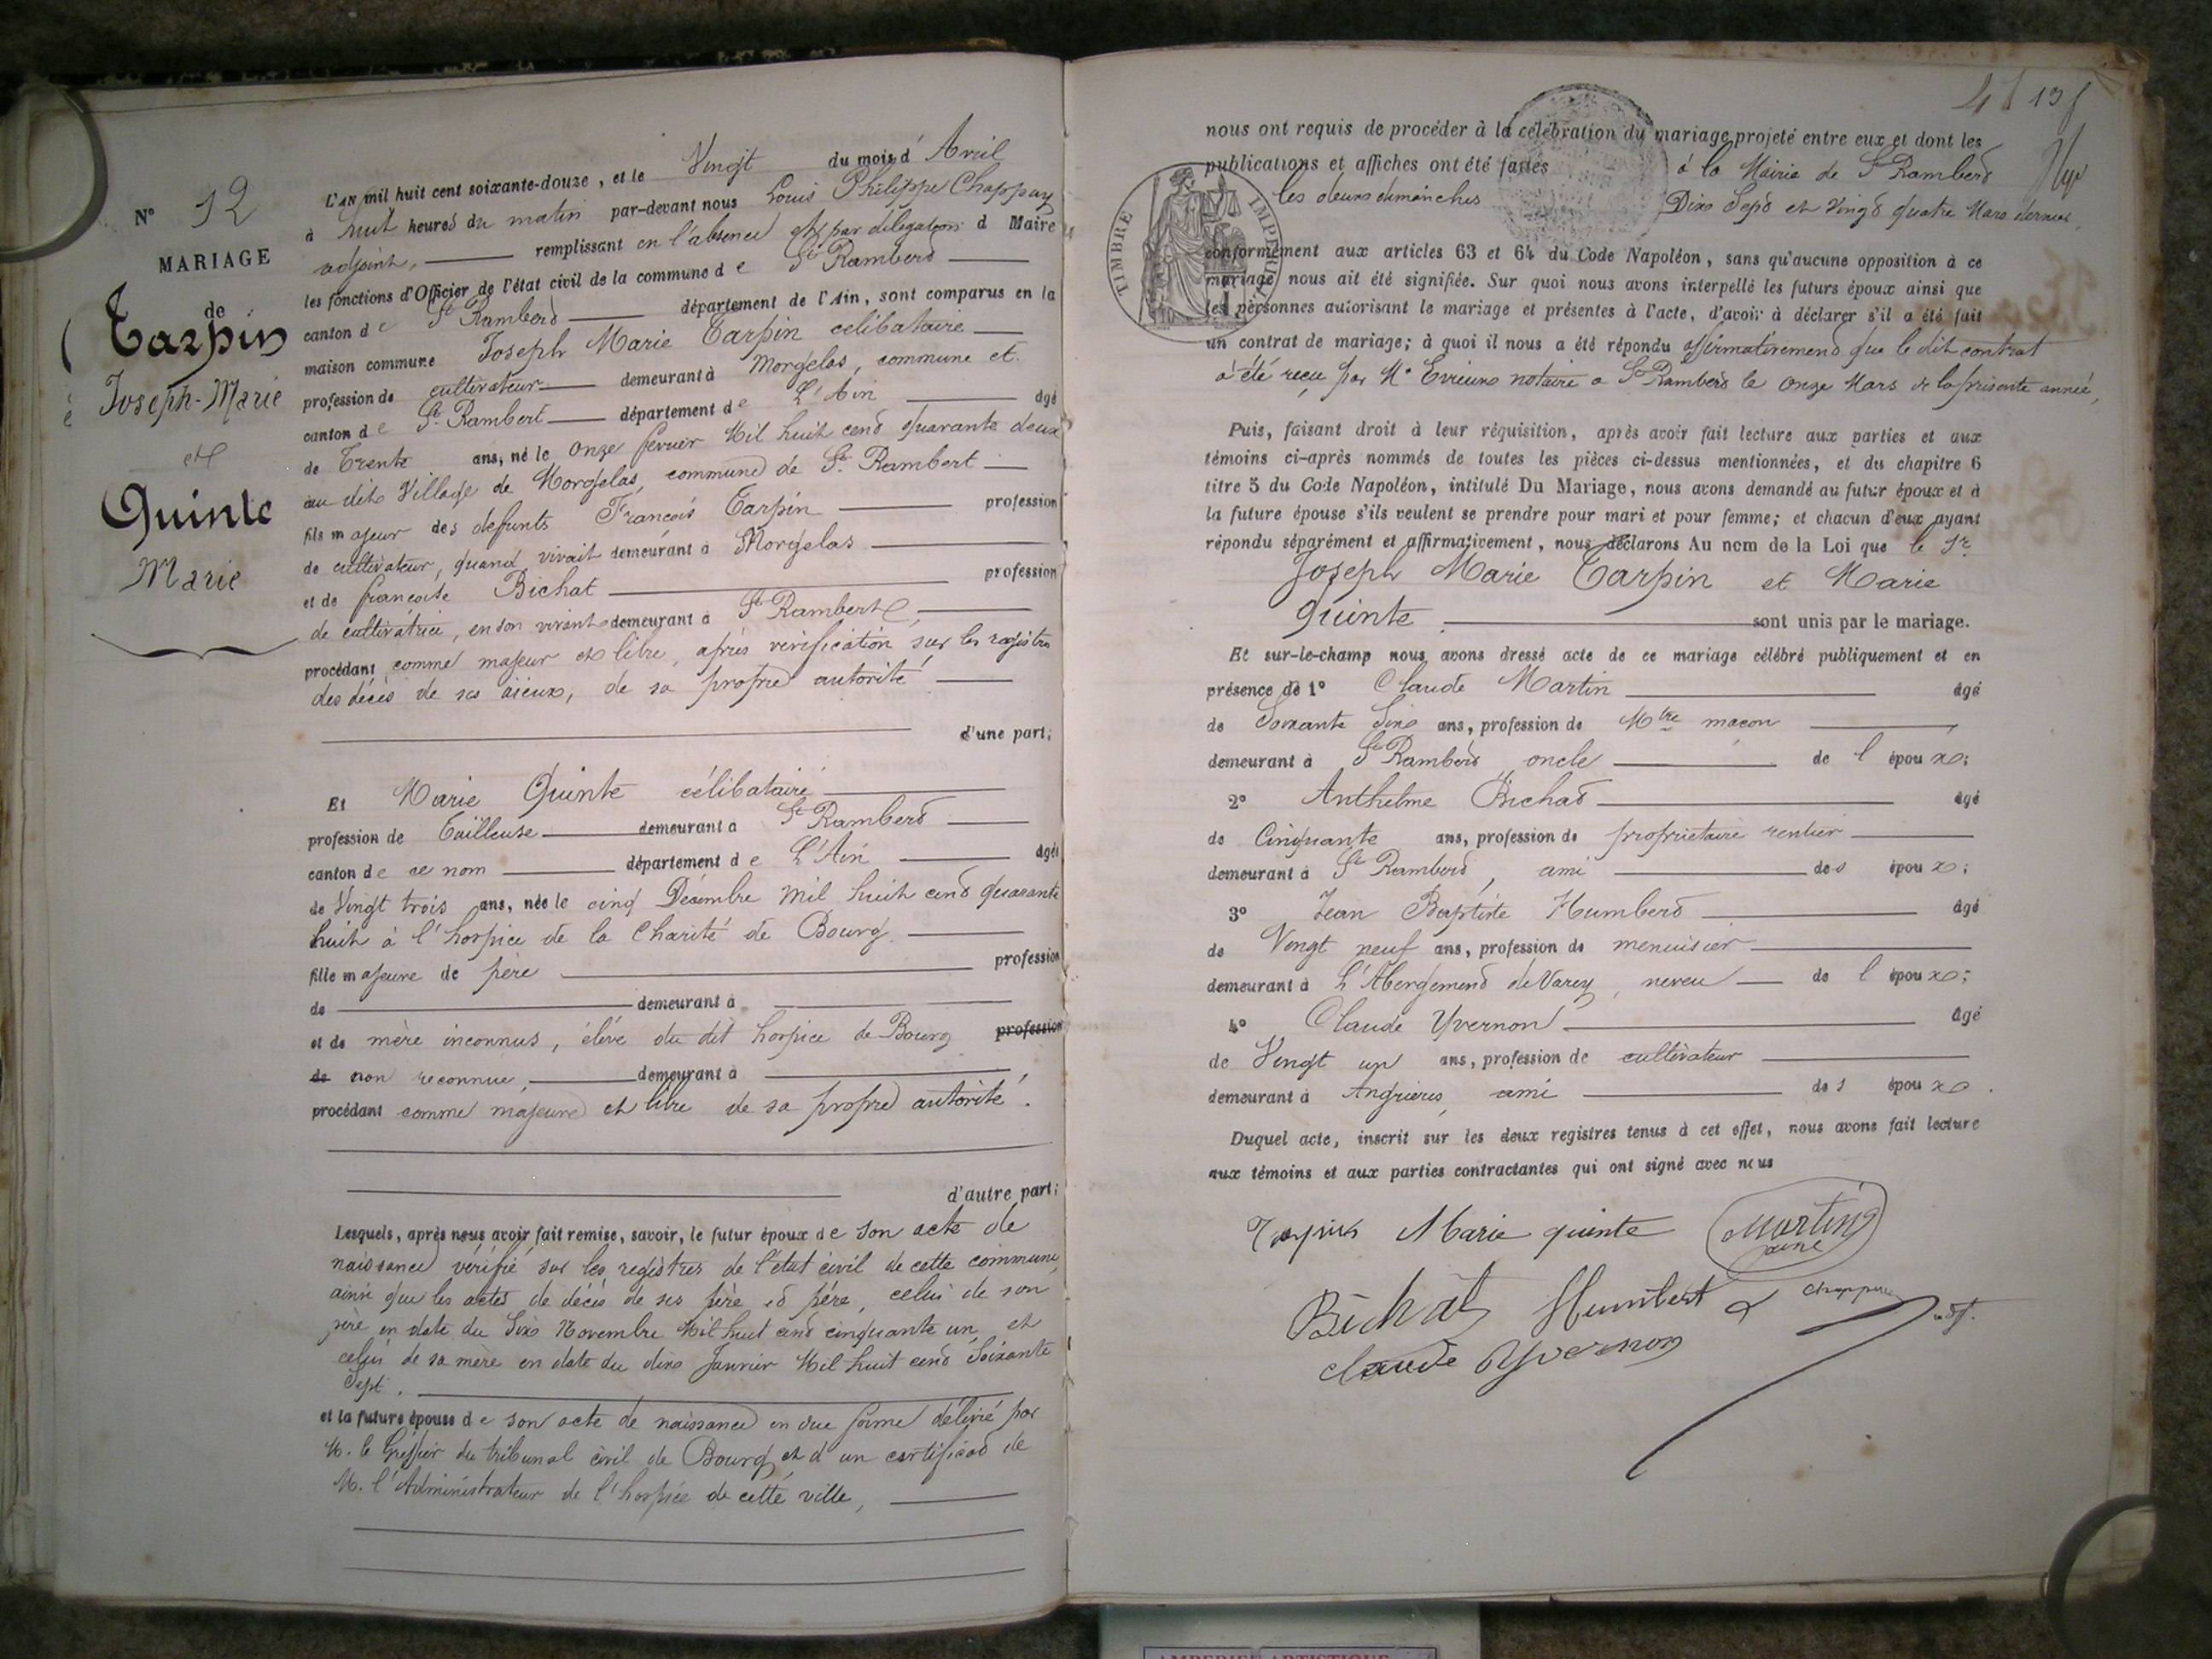 N° 12
MARIAGE
de
Tarpin
Joseph-Marie
et
Quinte
Marie
L'AN mil huit cent soixante-douze, et le Vingt du mois d'Avril
à huit heures du matin par-devant nous Louis Philippe Chappuy
adjoint, remplissant en l'absence et par délégation d Maire
les fonctions d'Officier de l'état civil de la commune de St Rambert
canton de St Rambert département de l'Ain, sont comparus en la
maison commune Joseph Marie Tarpin célibataire
profession de cultivateur demeurant à Morgelas, commune et
canton de St Rambert département de L'Ain âgé
de Trente ans, né le onze février Mil huit cent quarante deux
au dit Village de Morgelas, commune de St Rambert
fils majeur des defunts François Tarpin profession
de cultivateur, quand vivait demeurant à Morgelas
et de françoise Bichat profession
de cultivatrice, en son vivant demeurant à St Rambert,
procédant comme majeur et libre, après vérification sur les registres
des décès de ses aïeux, de sa propre autorité
d'une part;
Et Marie Quinte célibataire
profession de Tailleuse demeurant à St Rambert
canton de ce nom département de L'Ain âgée
de Vingt trois ans, née le cinq Décembre mil huit cent quarante
huit à l'hospice de la Charité de Bourg
fille majeure de père profession
de demeurant à
et de mère inconnus, élève du dit hospice de Bourg profession
de non reconnue, demeurant à
procédant comme majeure et libre de sa propre autorité.
d'autre part;
Lesquels, après nous avoir fait remise, savoir, le futur époux de son acte de
naissance vérifié sur les registres de l'état civil de cette commune,
ainsi que les actes de décès de ses père et père, celui de son
père en date du Six Novembre Mil huit cent cinquante un, et
celui de sa mère en date du dix Janvier Mil huit cent Soixante
Sept.
et la future épouse de son acte de naissance en due forme délivré par
M. le Greffier du tribunal civil de Bourg et d'un certificat de
M. l'Administrateur de l'hospice de cette ville,
nous ont requis de procéder à la célébration du mariage projeté entre eux et dont les
publications et affiches ont été faites à la Mairie de St Rambert
les deux dimanches Dix Sept et Vingt quatre Mars dernier,
TIMBRE IMPÉ
conformément aux articles 63 et 64 du Code Napoléon, sans qu'aucune opposition à ce
mariage nous ait été signifiée. Sur quoi nous avons interpellé les futurs époux ainsi que
les personnes autorisant le mariage et présentes à l'acte, d'avoir à déclarer s'il a été fait
un contrat de mariage; à quoi il nous a été répondu affirmativement que le dit contrat
a été reçu par Me Evrieux notaire a St Rambert le onze Mars de la présente année,
Puis, faisant droit à leur réquisition, après avoir fait lecture aux parties et aux
témoins ci-après nommés de toutes les pièces ci-dessus mentionnées, et du chapitre 6
titre 5 du Code Napoléon, intitulé Du Mariage, nous avons demandé au futur époux et à
la future épouse s'ils veulent se prendre pour mari et pour femme; et chacun d'eux ayant
répondu séparément et affirmativement, nous déclarons Au nom de la Loi que le Sr
Joseph Marie Tarpin et Marie
Quinte sont unis par le mariage.
Et sur-le-champ nous avons dressé acte de ce mariage célébré publiquement et en
présence de 1° Claude Martin âgé
de Soixante Six ans, profession de Mtre maçon
demeurant à St Rambert oncle de l époux;
2° Anthelme Bichat âgé
de Cinquante ans, profession de propriétaire rentier
demeurant à St Rambert, ami des époux;
3° Jean Baptiste Humbert âgé
de Vingt neuf ans, profession de menuisier
demeurant à L'Abergement de Varey, neveu de l époux;
4° Claude Yvernon âgé
de Vingt un ans, profession de cultivateur
demeurant à Angrières, ami des époux.
Duquel acte, inscrit sur les deux registres tenus à cet effet, nous avons fait lecture
aux témoins et aux parties contractantes qui ont signé avec nous
Tarpin Marie quinte Martin
ainé
Bichat Humbert Chappuy adj.
claude Yvernon
AMBERIEU ARTISTIQUE